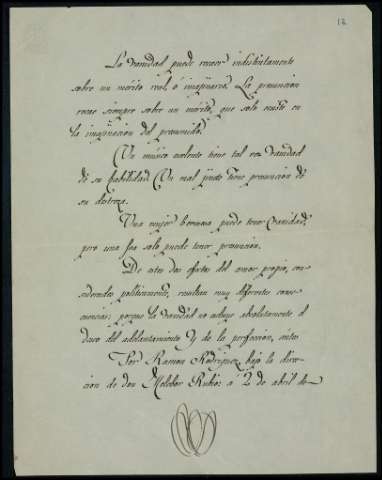 12
La vanidad puede recaer indistintamente
sobre un mérito real, ó imaginario. La presuncion
recae siempre sobre un mérito, que solo existe en
la imaginacion del presumido.
Un músico excelente tiene tal vez vanidad
de su habilidad. Un mal tiene presuncion de
su destreza.
Una mujer hermosa puede tener vanidad,
pero una fea solo puede tener presuncion.
De estos dos efectos del amor propio, con-
siderados politicamente, resultan muy diferentes conse-
cuencias; porque la vanidad no excluye absolutamente el
deseo del adelantamiento y de la perfeccion, antes
Por Ramon Rodriguez bajo la direc-
cion de don Melchor Rubio: á 2 de abril de